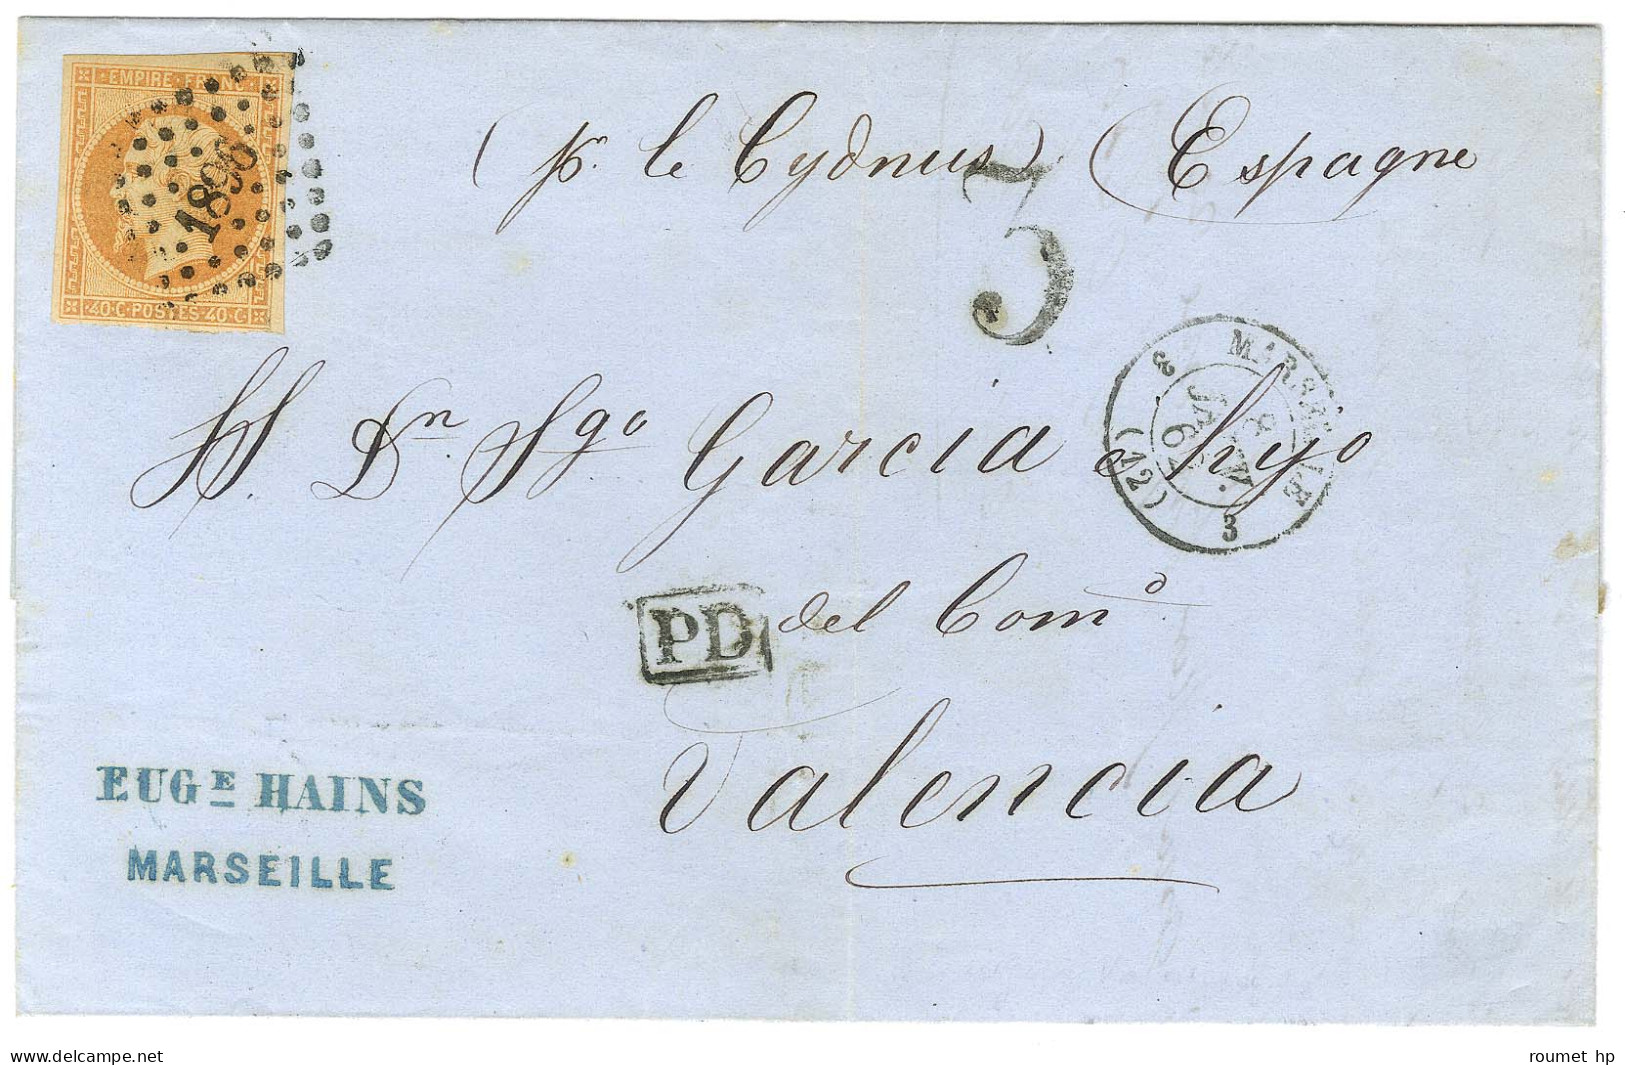 EMPIRE · FRANC ·
1896
· 40 · C · POSTES · 40 · C ·
(pr. le Cydnus) (Espagne
3
MARSEILLE
3
8
JANV.
62
(12)
3
SS Dn Sgo Garcia é hijo
PD
del Como.
Valencia
EUGE HAINS
MARSEILLE
www.delcampe.net
roumet hp